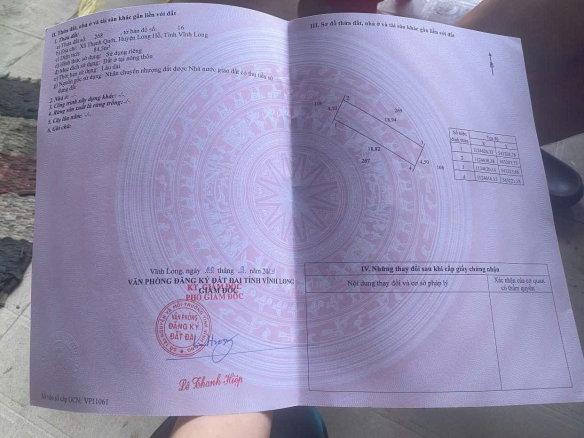 II. Thửa đất, nhà ở và tài sản khác gắn liền với đất
1. Thửa đất:
a) Thửa đất số: 268 tờ bản đồ số: 16
b) Địa chỉ: Xã Thanh Quới, Huyện Long Hồ, Tỉnh Vĩnh Long
c) Diện tích: 84,3m²
d) Hình thức sử dụng: Sử dụng riêng
đ) Mục đích sử dụng: Đất ở tại nông thôn
e) Thời hạn sử dụng: Lâu dài
g) Nguồn gốc sử dụng: Nhận chuyển nhượng đất được Nhà nước giao đất có thu tiền sử dụng đất.
2. Nhà ở: -/-.
3. Công trình xây dựng khác: -/-.
4. Rừng sản xuất là rừng trồng: -/-.
5. Cây lâu năm: -/-.
6. Ghi chú:
Vĩnh Long, ngày tháng năm
VĂN PHÒNG ĐĂNG KÝ ĐẤT ĐAI TỈNH VĨNH LONG
GIÁM ĐỐC
KT. GIÁM ĐỐC
PHÓ GIÁM ĐỐC
VĂN PHÒNG
ĐĂNG KÝ
ĐẤT ĐAI
Lê Thanh Hiệp
Số vào sổ cấp GCN: VP11061
III. Sơ đồ thửa đất, nhà ở và tài sản khác gắn liền với đất
269
18,94
18,82
267
4,52
168
4
Số hiệu đỉnh thửa
Tọa độ
IV. Những thay đổi sau khi cấp giấy chứng nhận
Nội dung thay đổi và cơ sở pháp lý
Xác nhận của cơ quan có thẩm quyền